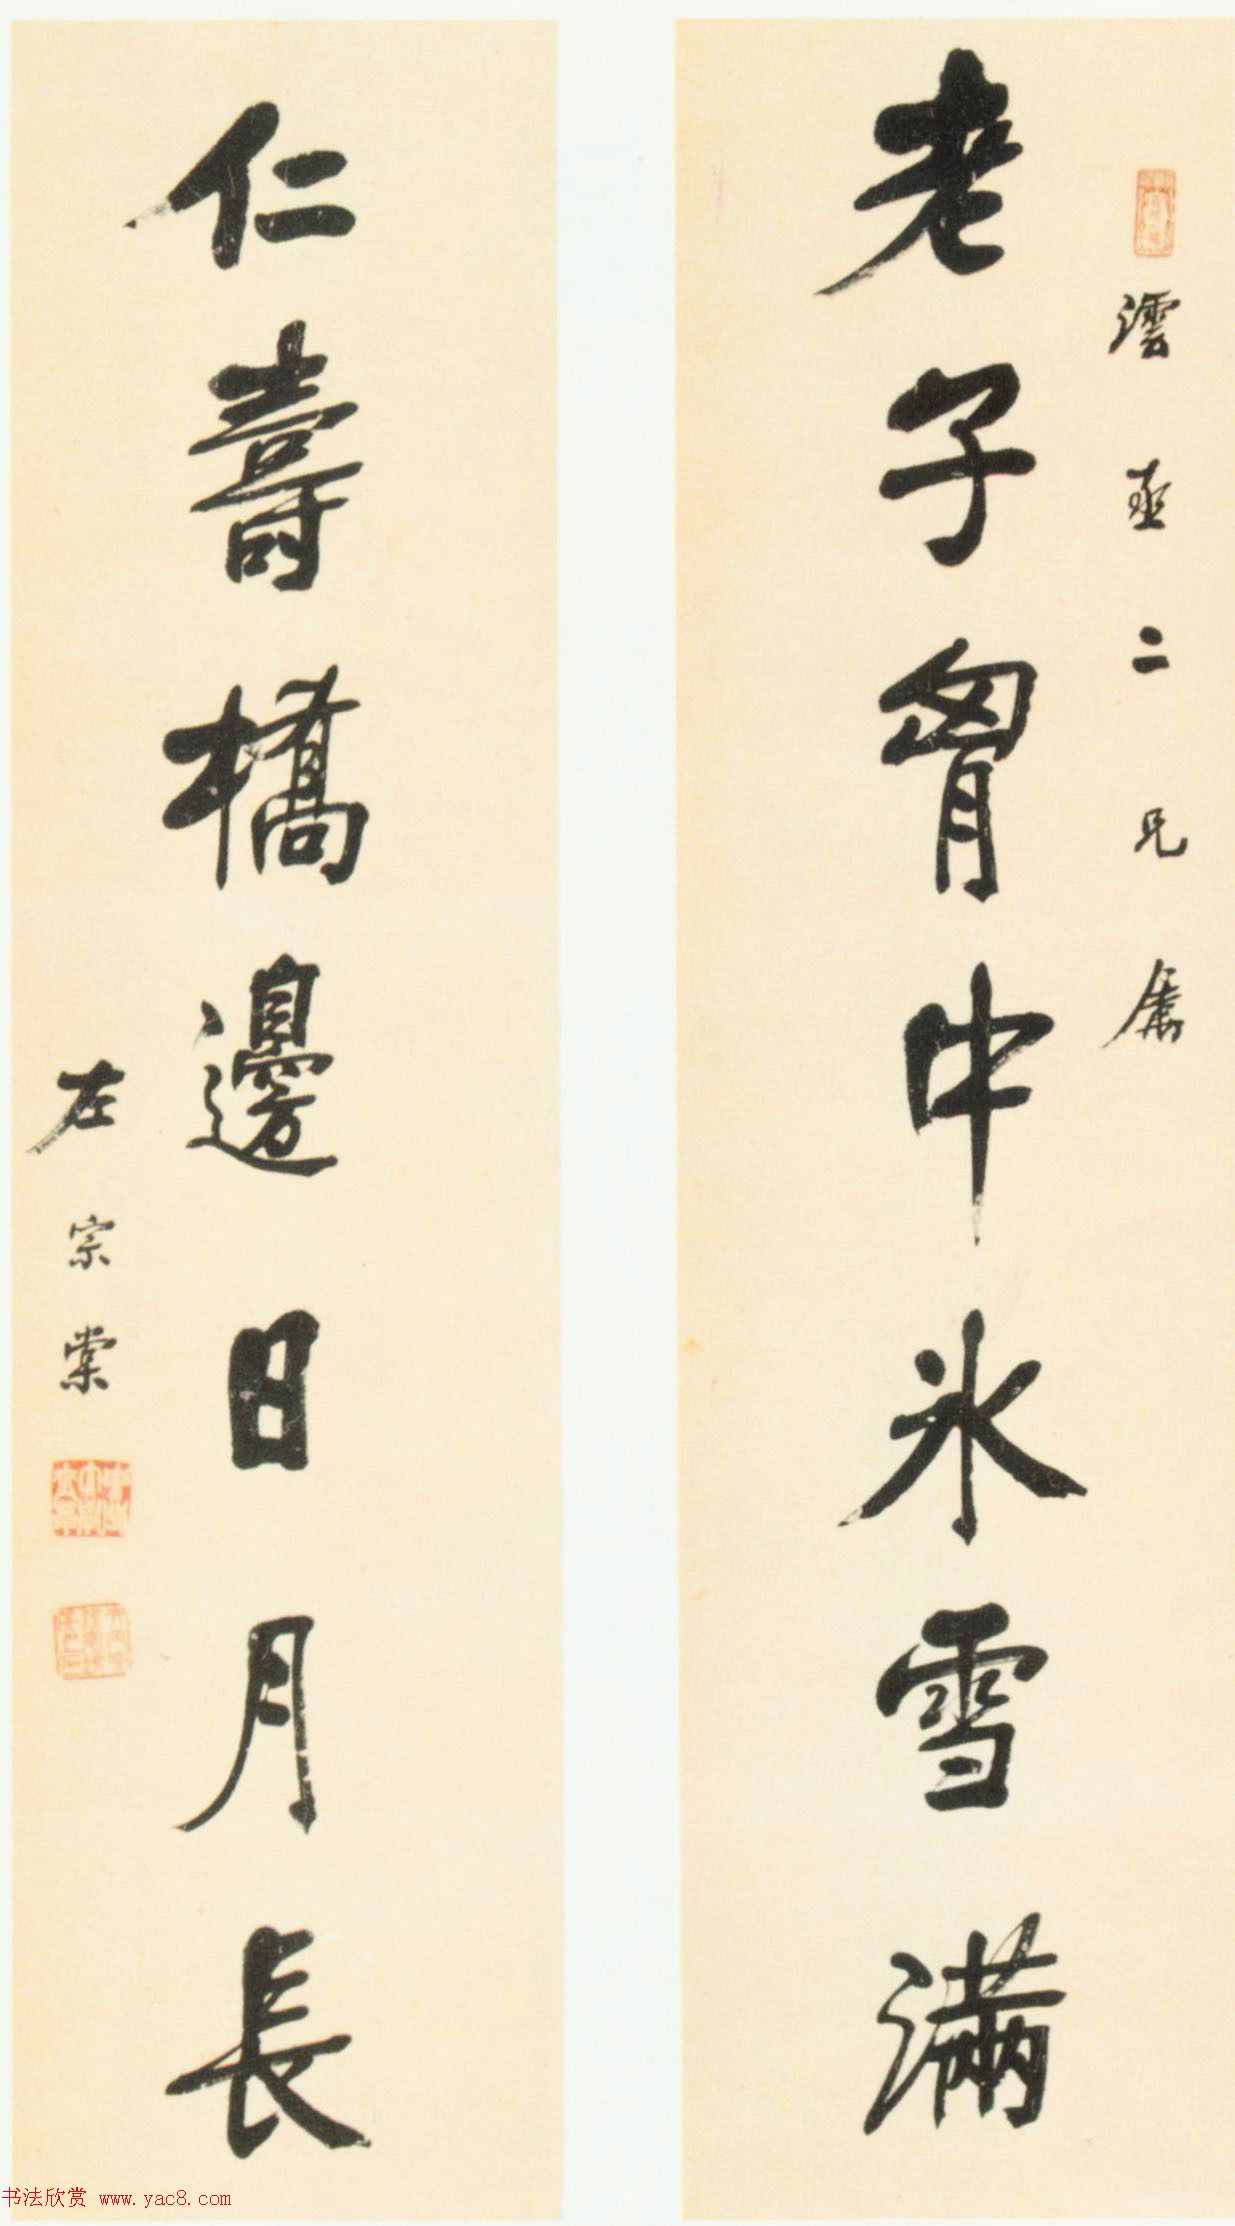 澐二兄屬
老子胷中氷雪滿
仁壽橋邊日月長
左宗棠
书法欣赏 www.yac8.com